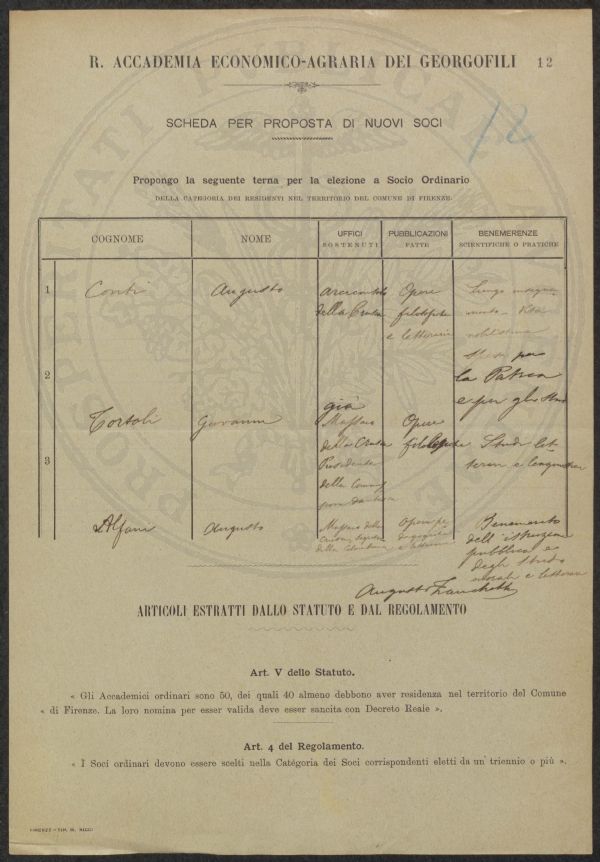 R. ACCADEMIA ECONOMICO-AGRARIA DEI GEORGOFILI 12
12
SCHEDA PER PROPOSTA DI NUOVI SOCI
Propongo la seguente terna per la elezione a Socio Ordinario
DELLA CATEGORIA DEI RESIDENTI NEL TERRITORIO DEL COMUNE DI FIRENZE.
COGNOME
NOME
UFFICI
SOSTENUTI
PUBBLICAZIONI
FATTE
BENEMERENZE
SCIENTIFICHE O PRATICHE
1
Conti
Augusto
arciconsolo
della Crusca
Opere
filosofiche
e letterarie
Lungo insegna-
mento. Vita
nobilissima
spesa per
la Patria
e per gli studi
2
Tortoli
Giovanni
già
Massaio
della Crusca
Presidente
della Comm
Opere
filologiche
Studi let-
terari e linguistici
3
Alfani
Augusto
Massaio della
Crusca, Segret
della Colombaria
Opere pe-
dagogiche
e letterarie
Benemerito
dell'istruzione
pubblica e
degli studi
morali e letterari
Augusto Franchetti
ARTICOLI ESTRATTI DALLO STATUTO E DAL REGOLAMENTO
Art. V dello Statuto.
« Gli Accademici ordinari sono 50, dei quali 40 almeno debbono aver residenza nel territorio del Comune
« di Firenze. La loro nomina per esser valida deve esser sancita con Decreto Reale ».
Art. 4 del Regolamento.
« I Soci ordinari devono essere scelti nella Catégoria dei Soci corrispondenti eletti da un triennio o più ».
FIRENZE - TIP. M. RICCI